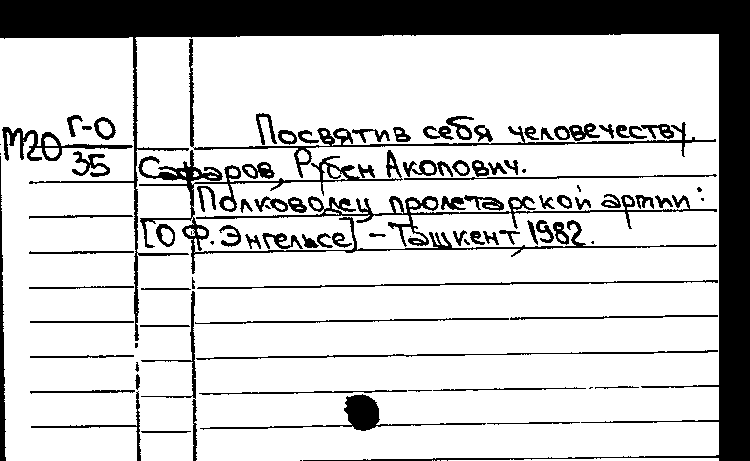 Посвятив себя человечеству.
М20 Г-О
35
Сафаров, Рубен Акопович.
Полководец пролетарской армии:
[О Ф. Энгельсе] - Ташкент, 1982.